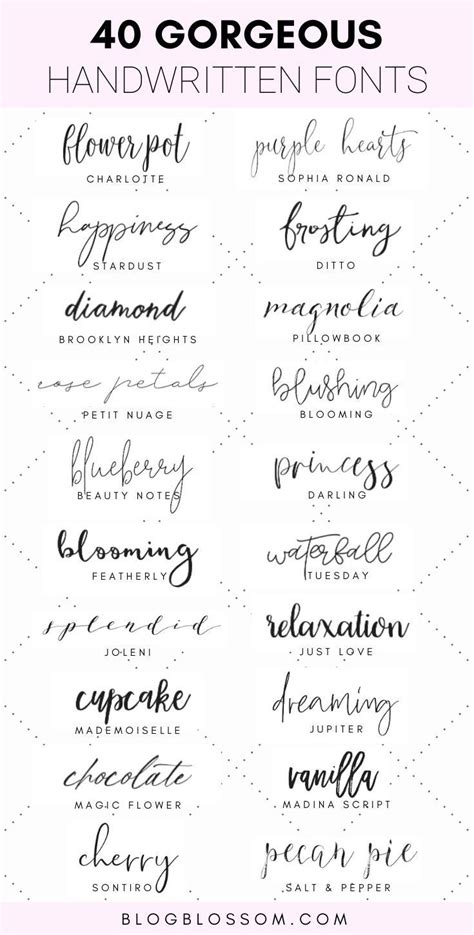 40 GORGEOUS
HANDWRITTEN FONTS
flower pot
CHARLOTTE
purple hearts
SOPHIA RONALD
happiness
STARDUST
frosting
DITTO
diamond
BROOKLYN HEIGHTS
magnolia
PILLOWBOOK
rose petals
PETIT NUAGE
blushing
BLOOMING
blueberry
BEAUTY NOTES
princess
DARLING
blooming
FEATHERLY
waterfall
TUESDAY
splendid
JOLENI
relaxation
JUST LOVE
cupcake
MADEMOISELLE
dreaming
JUPITER
chocolate
MAGIC FLOWER
vanilla
MADINA SCRIPT
cherry
SONTIRO
pecan pie
SALT & PEPPER
BLOGBLOSSOM.COM